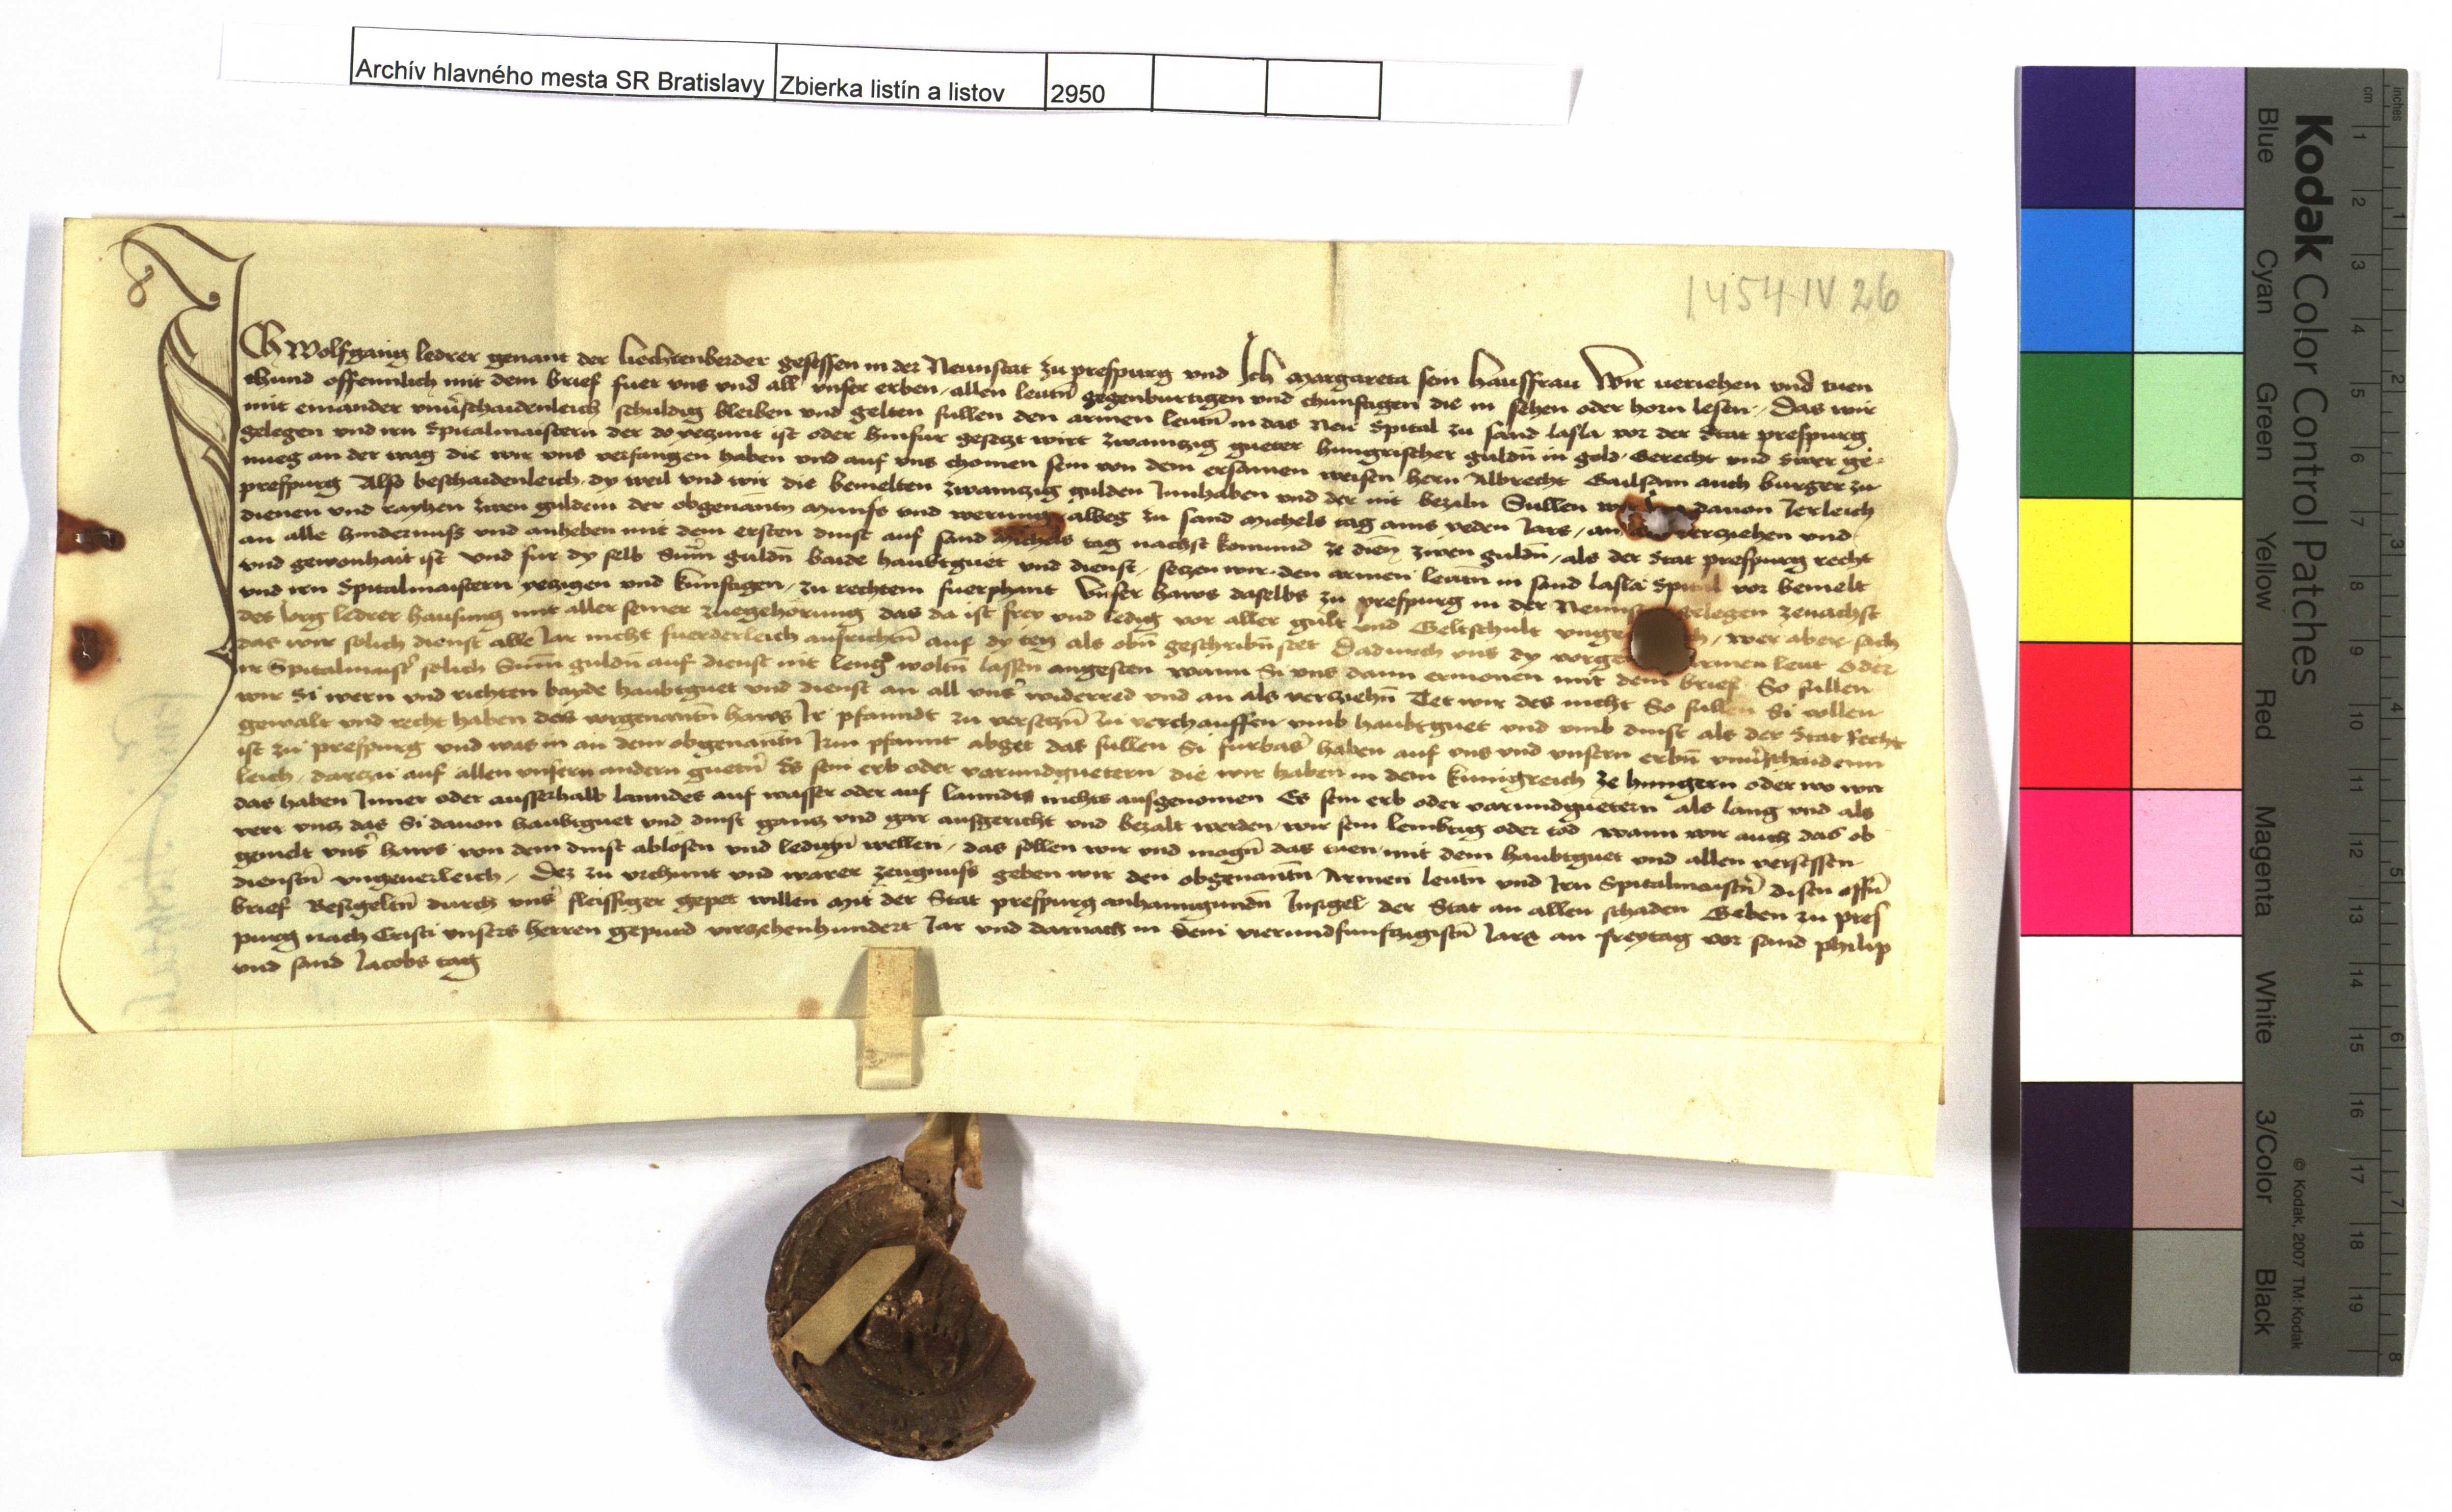 Archív hlavného mesta SR Bratislavy Zbierka listín a listov 2950
1454 IV 26
ICh Wolfgang ledrer genant der liechtenberder gesessen in der Neunstat zu prespurg vnd Ich Margareta sein hausfrau Wir veriehen vnd tuen
chund offennlich mit dem brief fuer vns vnd all vnser erben, allen leutn̄ gegenburtigen vnd chunftigen die in sehen oder horn lesen, Das wir
mit einander schuldig bleiben vnd gelten sullen den armen leutn̄ in das Neu Spital zu sand lasla vor der Stat prespurg
gelegen vnd irn Spitalmaistern der do yezunt ist oder hinfur gesetzt wirt zwainczig gueter hungrischer guldn̄ in gold, Gerecht vnd swer ge-
nueg an der wag die wir vns verfangen haben vnd auf vns chomen sein von dem ersamen weisen hern Albrecht Gailsam auch burger zu
prespurg Also beschaidenleich, dy weil vnd wir die bemelten zwainczig gulden Innhaben vnd der nit bezaln Sullen dauon Ierleich
dienen vnd raychen zwen guldein der obgenantn munss vnd werung albeg zu sand Michels tag ains yeden Jars, an verziehen vnd
an alle hindernuss vnd anheben mit dem ersten dinst auf sand Michels tag nachst komund ze dien̄ zwen guldn̄, als der Stat prespurg recht
vnd gewonhait ist Vnd fur dy selb Sum̄ guldn̄ baide haubtguet vnd dienst, setzen wir den armen leutn̄ in sand lasla Spital vor bemelt
vnd irn Spitalmaistern yezigen vnd kunftigen, zu rechtem fuerphant Vnser haws daselbs zu prespurg in der gelegen zenachst
des Iorg ledrer hausung mit aller seiner zuegehorung das da ist frey vnd ledig vor aller gult vnd Geltschult wer aber sach
das wir solich dienst alle Jar nicht fuerderleich ausrichtn̄ auf dy zeit als obn̄ geschribn̄ stet Dadurch vns dy armen leut oder
ir Spitalmaistr̄ solich Sum̄ guldn̄ auf dienst nit lengr̄ woltn̄ lassen angesten wann Si vns dann ermonen mit dem brief So sullen
wir Si wern vnd richten bayde haubtguet vnd dienst an all vnsr̄ widerred vnd an als verziehn̄ Tet wir des nicht So sullen Si vollen
gewalt vnd recht haben des vorgenantn̄ haws Ir pfanndt zu versetzn̄ zu verchauffen, vmb haubtguet vnd vmb dinst als der Stat Recht
ist zu prespurg vnd was in an dem obgenantn̄ Irm pfannt abget das sullen Si furbas haben auf vns vnd vnsern erbn̄
leich, darczu auf allen vnsern andern guetn̄ Es sein erb oder varundguetern, die wir haben in dem kunigreich ze hungern oder wo wir
das haben Inner oder ausserhalb lanndes auf wasser oder auf lanndes nichts ausgenomen Es sein erb oder varundguetern als lang vnd als
verr vnz das Si dauon haubtguet vnd dinst ganz vnd gar ausgericht vnd bezalt werden, wir sein lembtig oder tod wann wir auch das ob
gemelt vnsr̄ haws von dem dinst ablosen vnd ledign̄ wellen, das sollen wir vnd mogn̄ das tuen, mit dem haubtguet vnd allen versessen
dienstn̄ vngeuerleich, Des zu vrchunt vnd warer zeugnuss geben wir den obgenantn̄ Armen leutn̄ vnd Irn Spitalmaistrn̄ disen offn̄
brief Besigeltn̄ durch vnsr̄ fleissiger gepet willen mit der Stat prespurg anhanngundn̄ Insigel der Stat an allen schaden Geben zu pres
purg nach Cristi vnsers herren gepurd vierzehenhundert Jar vnd darnach in dem vierundfunfczigistn̄ Jars an freytag vor sand philip
vnd sand Jacobs tag
Kodak Color Control Patches
Blue Cyan Green Yellow Red Magenta White 3/Color Black
© Kodak, 2007 TM: Kodak
cm 1 2 3 4 5 6 7 8 9 10 11 12 13 14 15 16 17 18 19
inches 1 2 3 4 5 6 7 8